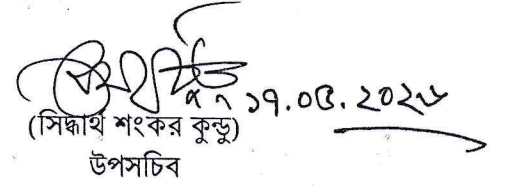 ১৭.০৫.২০২৬
(সিদ্ধার্থ শংকর কুন্ডু)
উপসচিব